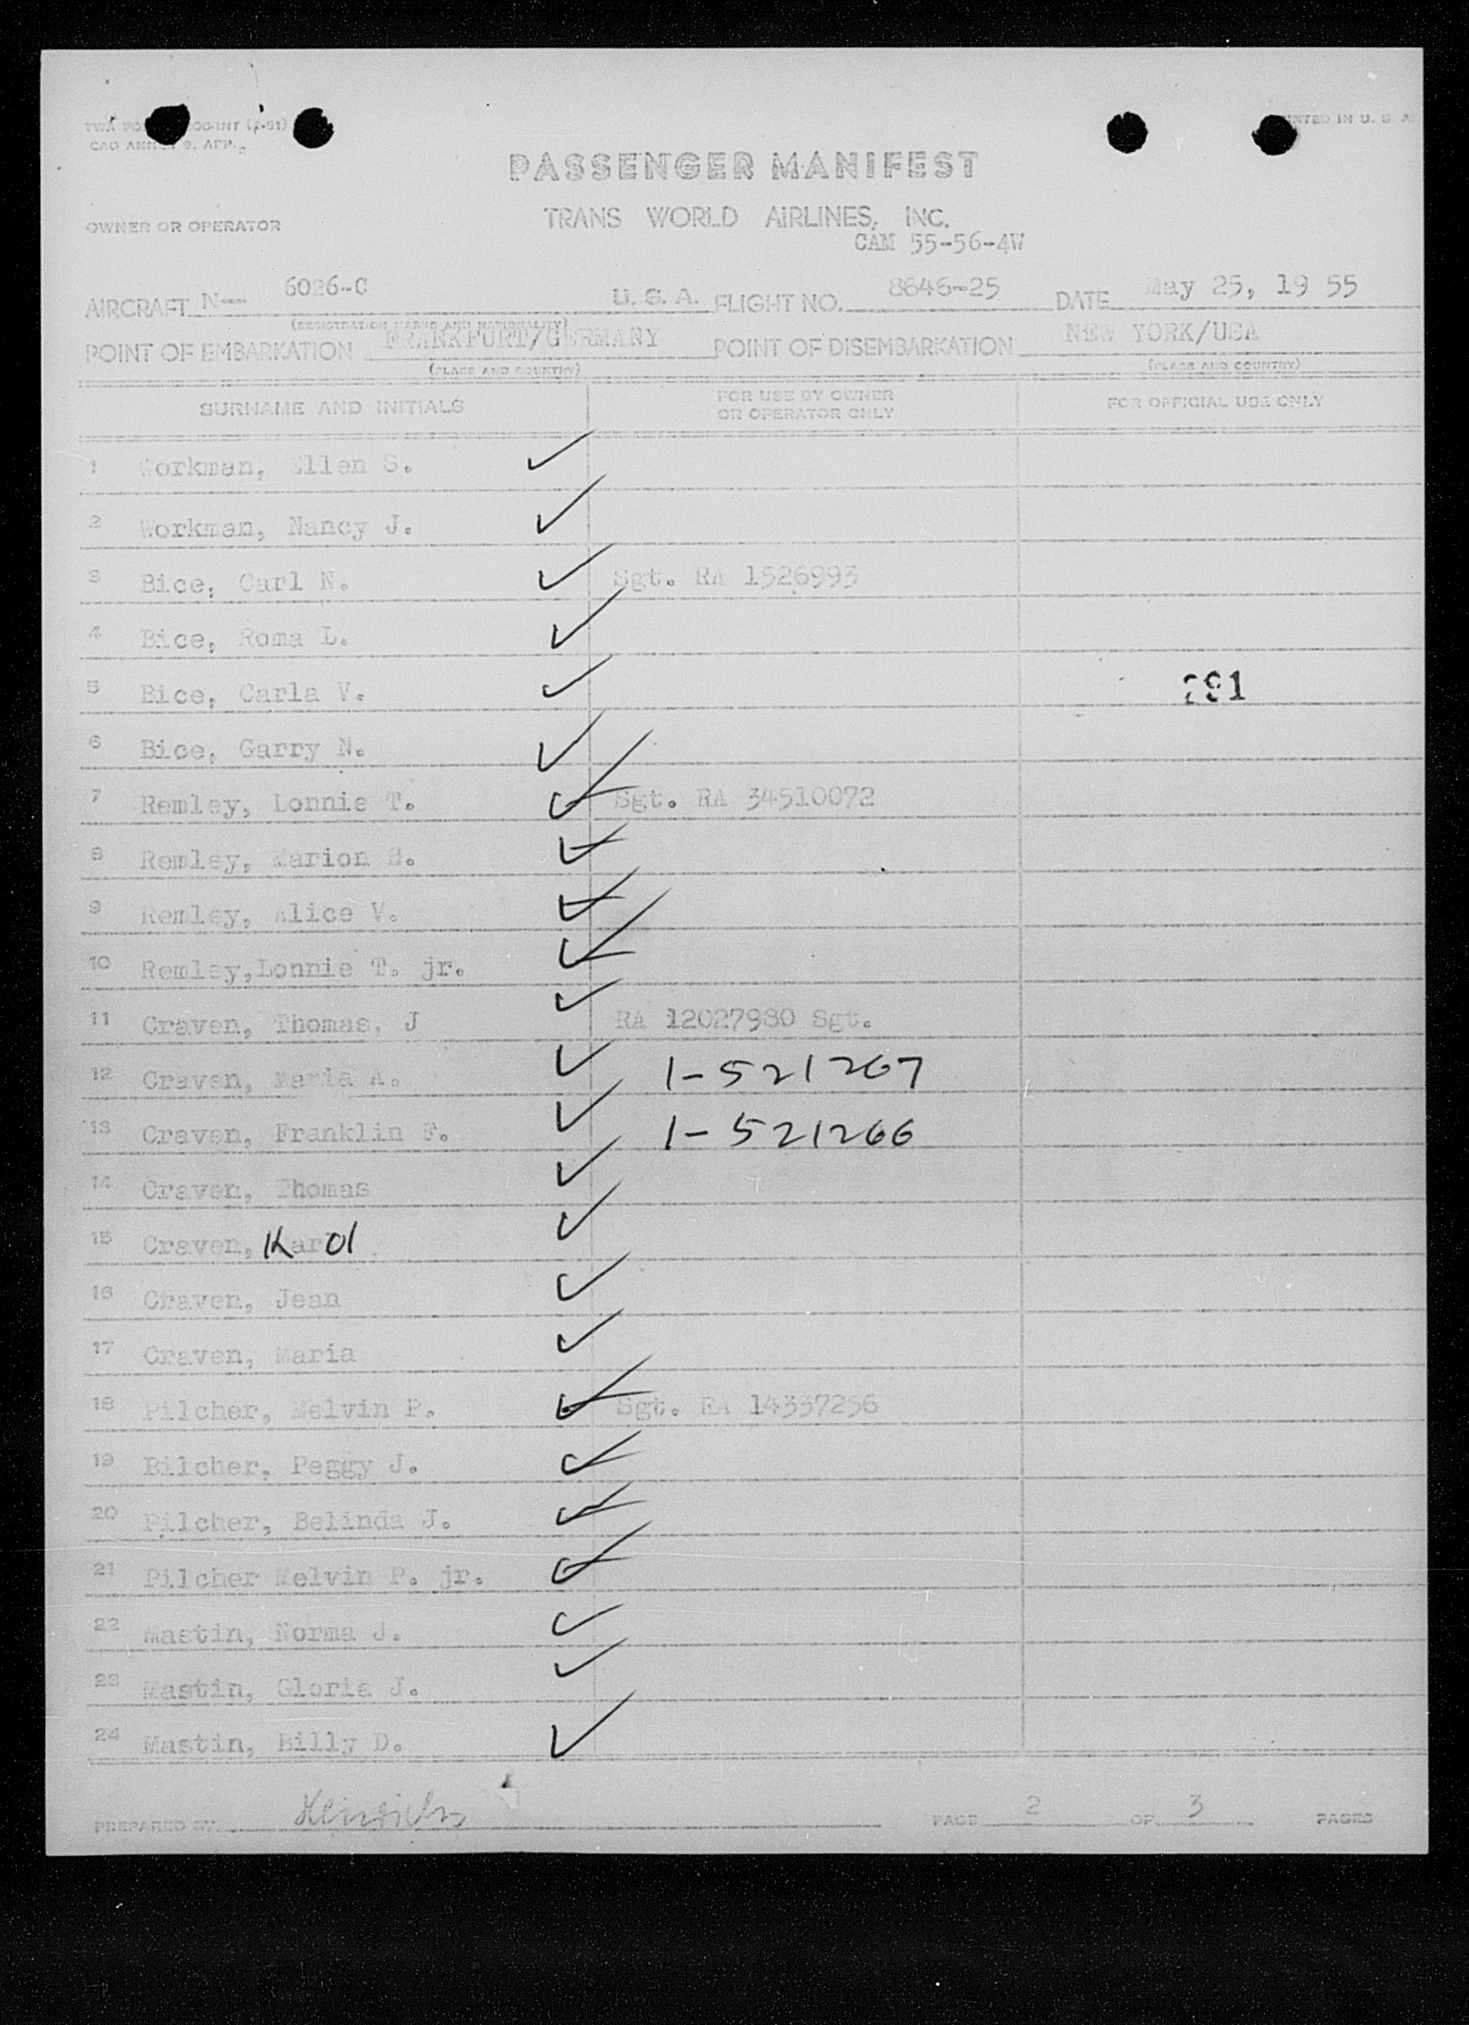 PRINTED IN U. S. A.
PASSENGER MANIFEST
OWNER OR OPERATOR TRANS WORLD AIRLINES, INC.
CAM 55-56-4W
AIRCRAFT N-- 6026-C U. S. A. FLIGHT NO. 8646-25 DATE May 25, 19 55
(REGISTRATION MARKS AND NATIONALITY)
POINT OF EMBARKATION FRANKFURT/GERMANY POINT OF DISEMBARKATION NEW YORK/USA
(PLACE AND COUNTRY) (PLACE AND COUNTRY)
SURNAME AND INITIALS FOR USE BY OWNER OR OPERATOR ONLY FOR OFFICIAL USE ONLY
1 Workman, Ellen S. ✓
2 Workman, Nancy J. ✓
3 Bice, Carl N. ✓ Sgt. RA 1526993
4 Bice, Roma L. ✓
5 Bice, Carla V. ✓
6 Bice, Garry N. ✓
7 Remley, Lonnie T. ✓ Sgt. RA 34510072
8 Remley, Marion H. ✓
9 Remley, Alice V. ✓
10 Remley,Lonnie T. jr. ✓
11 Craven, Thomas, J ✓ RA 12027980 Sgt.
12 Craven, Maria A. ✓ 1-521267
13 Craven, Franklin F. ✓ 1-521266
14 Craven, Thomas ✓
15 Craven, Karol ✓
16 Craven, Jean ✓
17 Craven, Maria ✓
18 Pilcher, Melvin P. ✓ Sgt. RA 14337256
19 Bilcher, Peggy J. ✓
20 Pilcher, Belinda J. ✓
21 Pilcher Melvin P. jr. ✓
22 Mastin, Norma J. ✓
23 Mastin, Gloria J. ✓
24 Mastin, Billy D. ✓
PREPARED BY Heinrichs PAGE 2 OF 3 PAGES